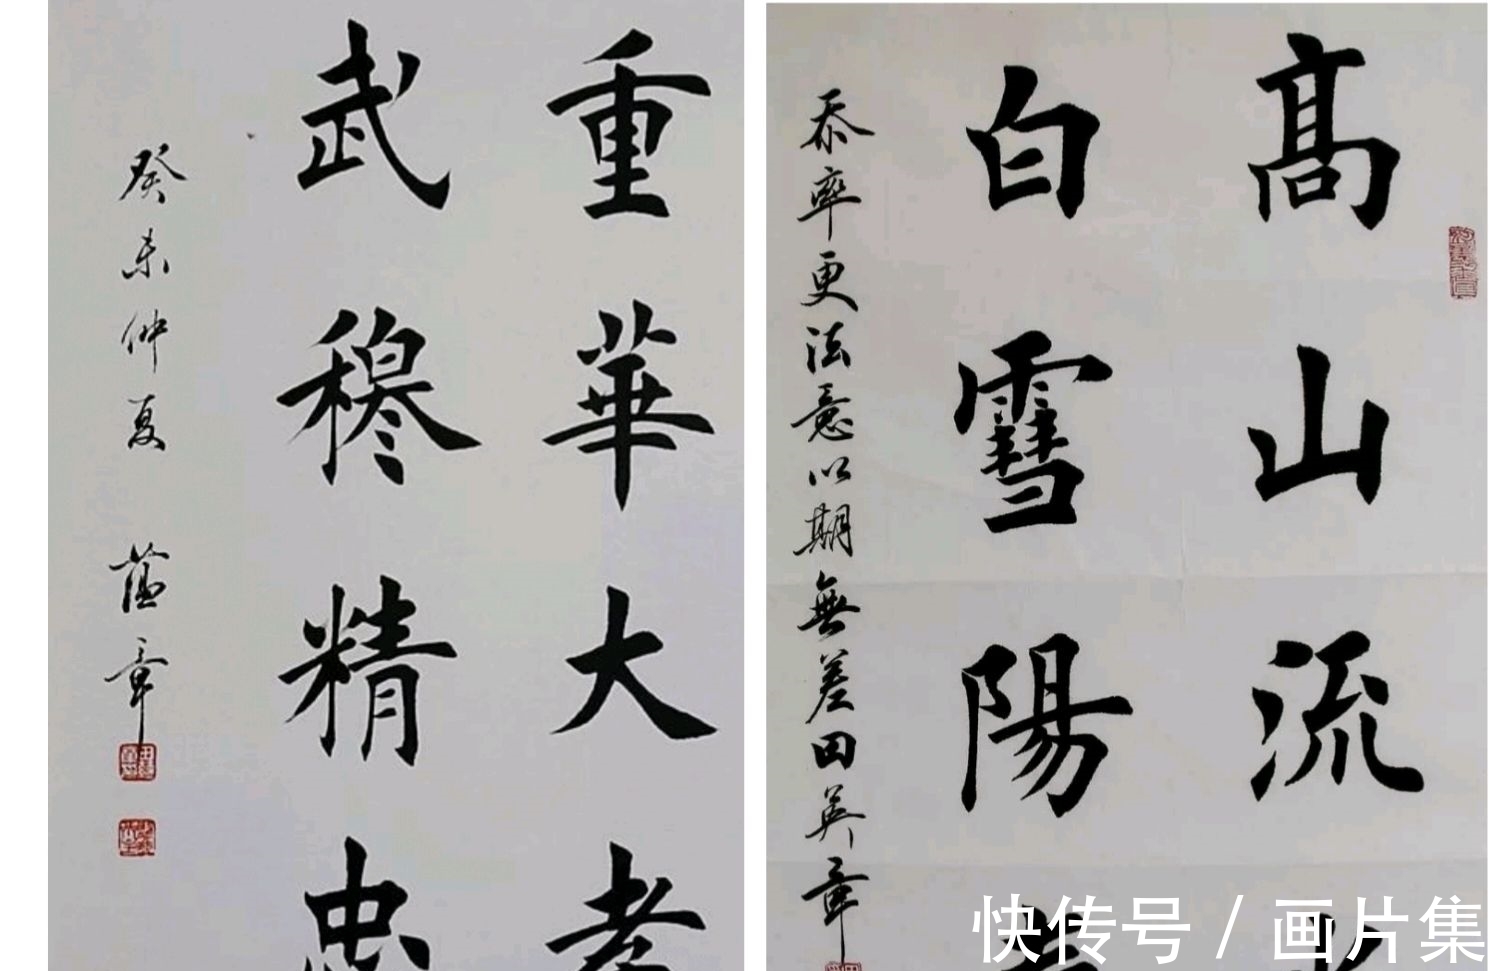 重華大孝
武穆精忠
癸未仲夏 蕴章
髙山流
白雪陽
忝率更法意以期無差田英章
快传号 / 画片集